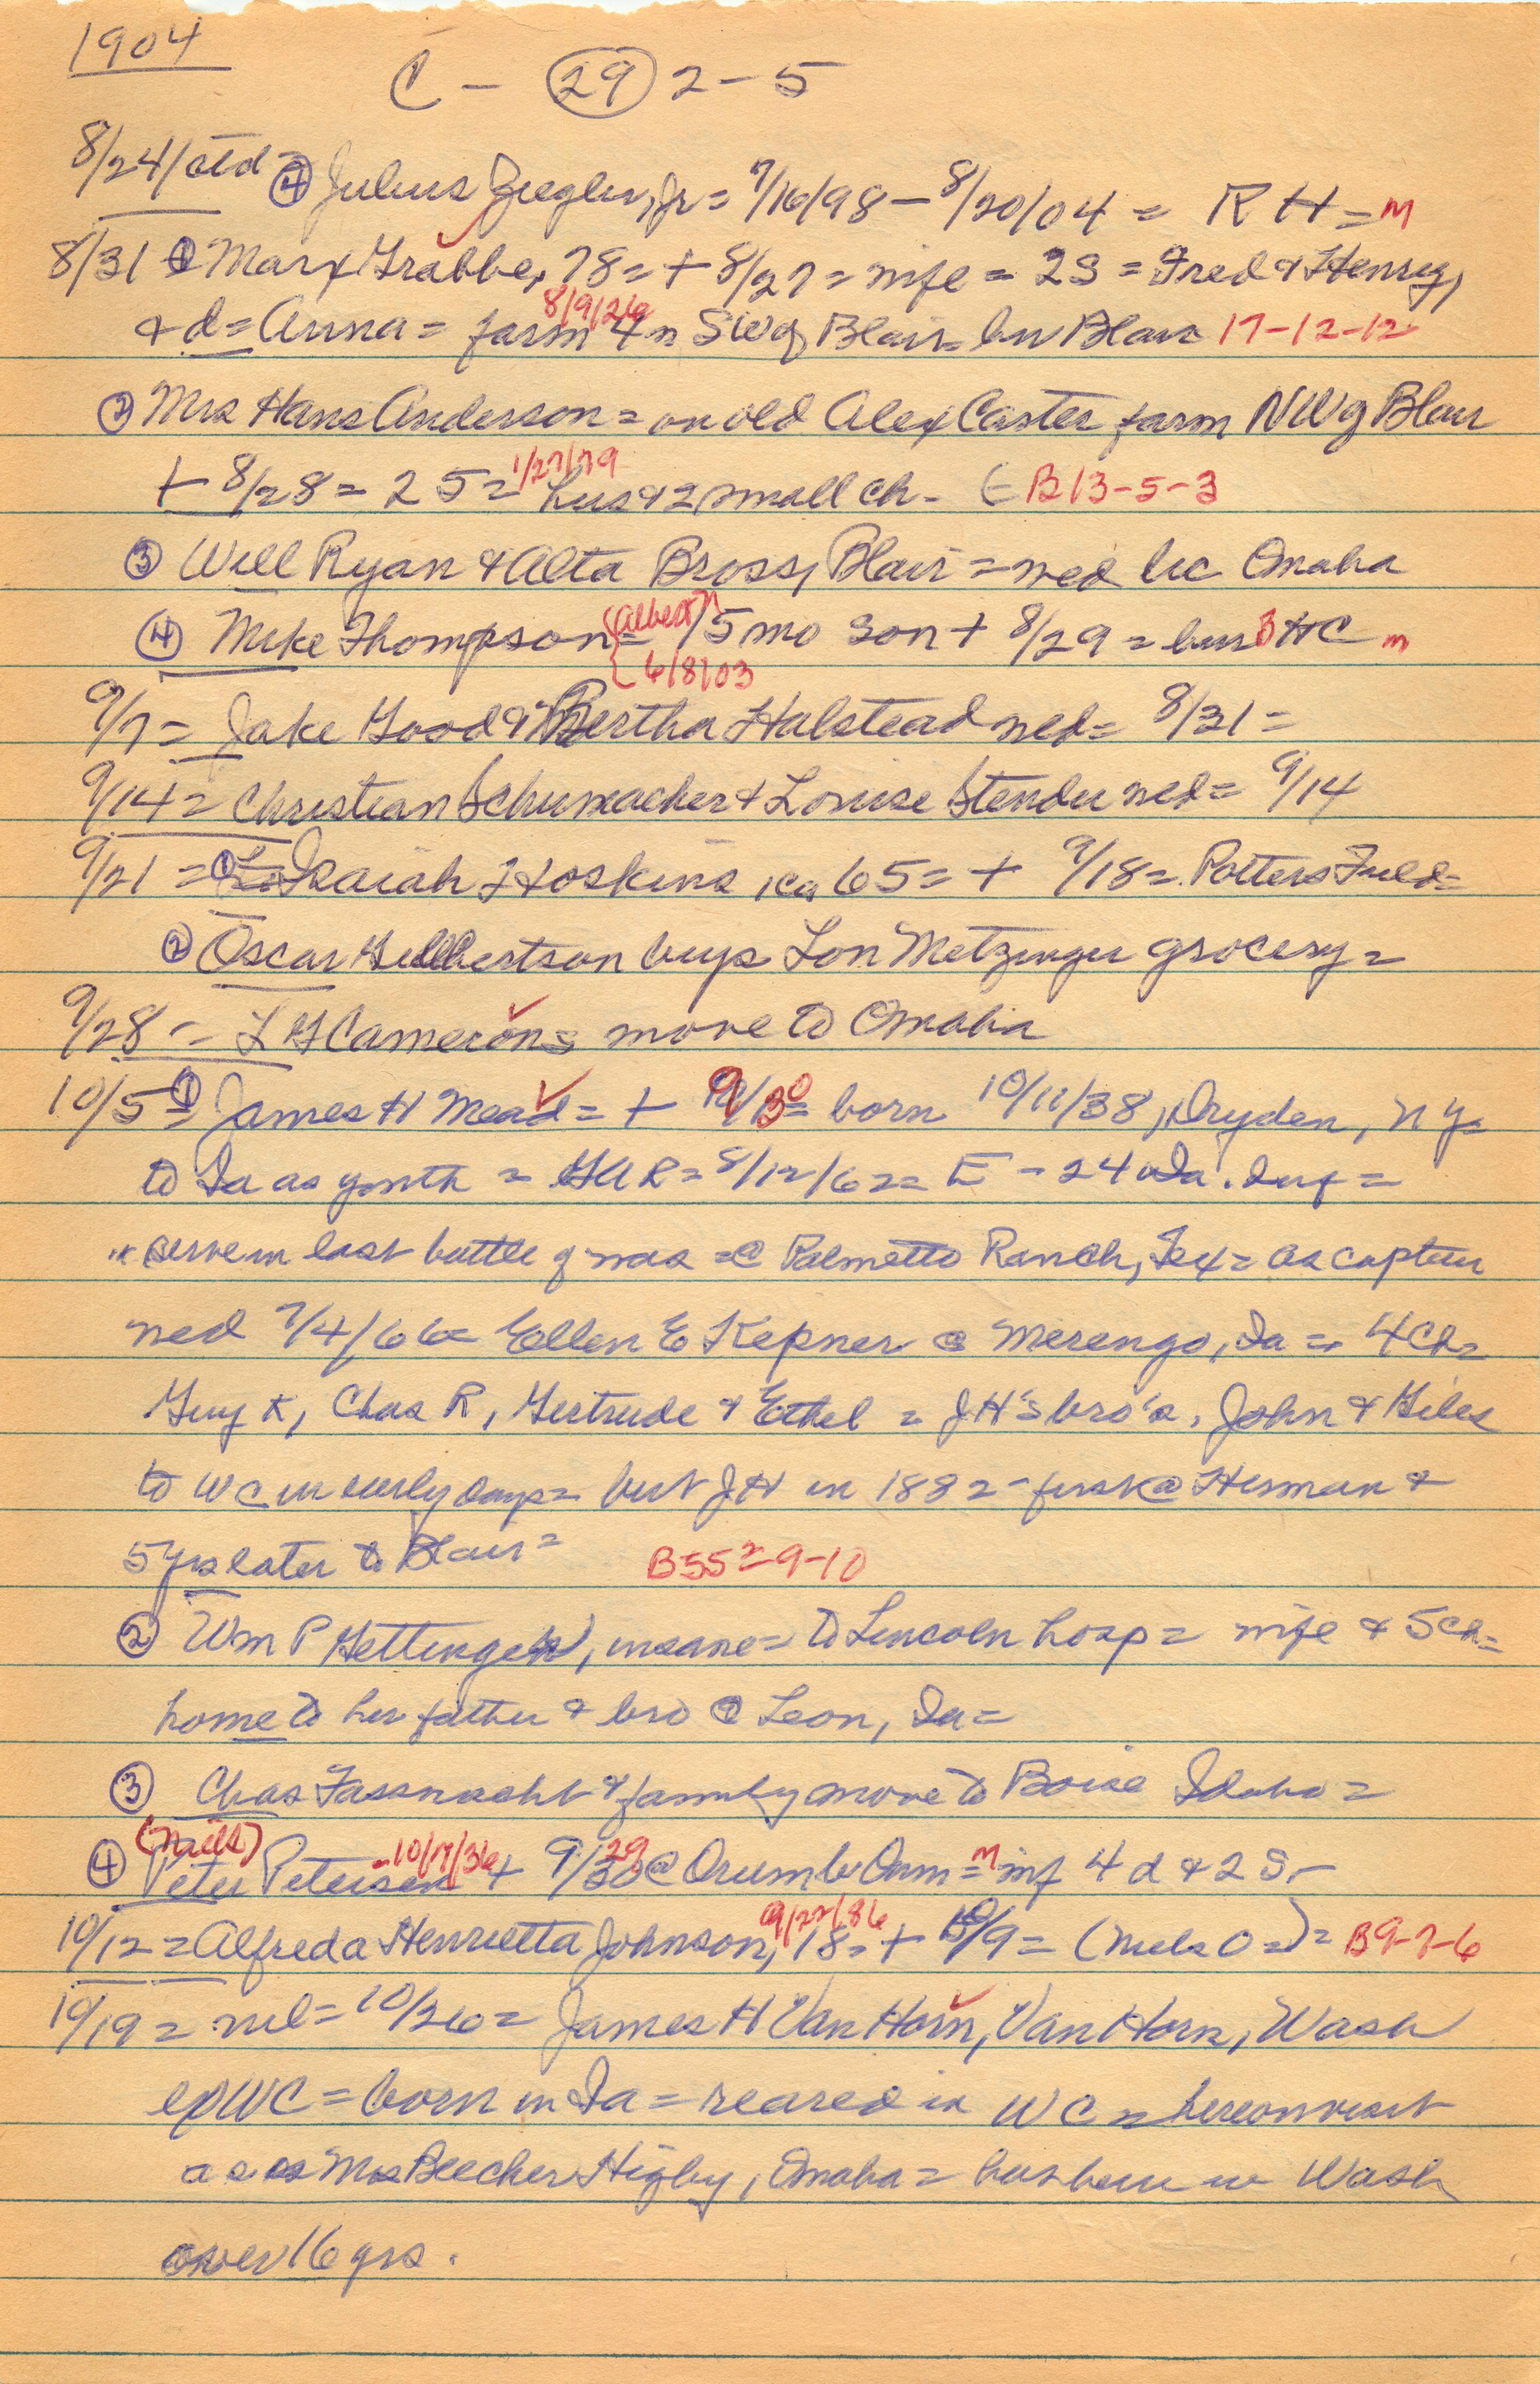 1904
C - (29) 2-5
8/24/ctd = (4) Julius Ziegler, Jr = 7/16/98 - 8/20/04 = R H = m
8/31 (1) Marx Grabbe, 78 = + 8/27 = wife = 2 S = Fred & Henry,
8/9/26
& d = Anna = farm 4 m SW of Blair = bu Blair 17-12-12
(2) Mrs Hans Anderson = on old Alex Carter farm NW of Blair
1/27/79
+ 8/28 = 25 = hus & 2 small ch - B13-5-3
(3) Will Ryan & Alta Bross, Blair = wed lic Omaha
(4) Mike Thompson = (Albert) 15 mo son + 8/29 = bur B HC m
6/8/03
9/7 = Jake Good & Bertha Halstead wed = 8/31 =
9/14 = Christian Schumacher & Louise Stender wed = 9/14
9/21 = (1) Isaiah Hoskins, ca 65 = + 9/18 = Potters Field =
(2) Oscar Gullbertson buys Lon Metzinger grocery =
9/28 - L G Camerons move to Omaha
10/5 = (1) James H Mead = + 9/30 = born 10/11/38, Dryden, N Y =
to Ia as youth = GAR = 8/12/62 = E - 24 Ia. Inf =
serve in last battle of war = @ Palmetto Ranch, Tex = as captain
wed 7/4/66 = Ellen E Kepner @ Merengo, Ia = 4 ch =
Guy K, Chas R, Gertrude & Ethel = J H's bro's, John & Giles
to WC in early days = but J H in 1882 - first @ Herman &
5 yrs later to Blair = B55²-9-10
(2) Wm P Hettinger, insane = to Lincoln hosp = wife & 5 ch =
home to her father & bro @ Leon, Ia =
(3) Chas Fassnacht & family move to Boise Idaho =
(Niels)
(4) Peter Petersen - 10/17/36 + 9/29 @ Orum bu Orum = m inf 4 d & 2 S -
9/22/86
10/12 = Alfreda Henrietta Johnson, 18 = + 10/9 = (Nels O =) = B9-7-6
10/19 = nil = 10/26 = James H Van Horn, Van Horn, Wash
ex WC = born in Ia = reared in WC = here on visit
as is Mrs Beecher Higby, Omaha = has been in Wash
over 16 yrs.